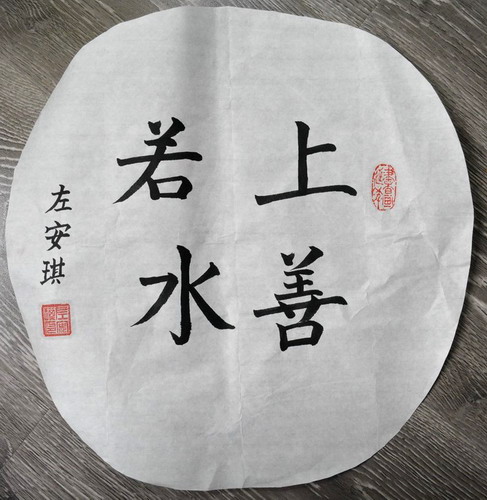 上善
若水
左安琪